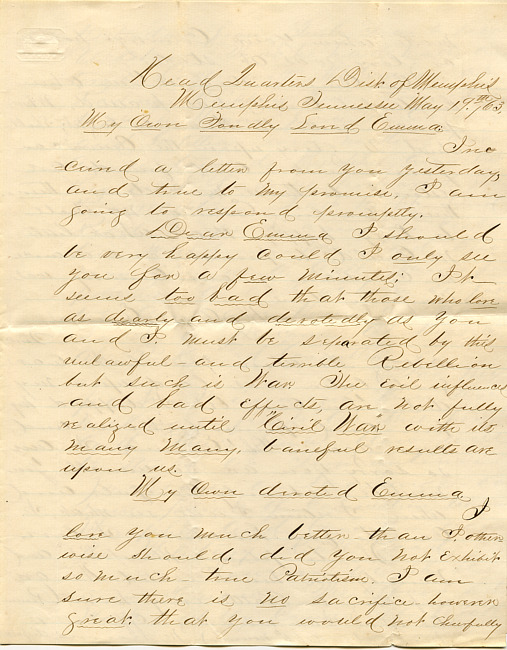 Head Quarters Dist of Memphis
Memphis Tennessee May 19th/63,
My Own Fondly Loved Emma
I re
ceived a letter from you yesterday,
and true to my promise, I am
going to respond promptly.
Dear Emma I should
be very happy could I only see
you for a few minutes; It
seems too bad that those who love
as dearly and devotedly as You
and I must be separated by this
unlawful and terrible Rebellion
but such is War The evil influences
and bad effects, are not fully
realized until "Civil War" with its
many Many, baneful results are
upon us.
My Own devoted Emma
I
love you much better than I other
wise should, did you not Exhibit
so much true Patriotism, I am
sure there is no sacrifice however
great, that you would not cheerfully